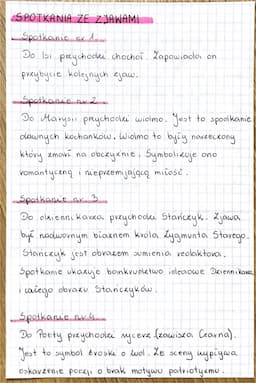 SPOTKANIA ZE ZJAWAMI
Spotkanie nr 1.
Do Isi przychodzi chochoł. Zapowiada on
przybycie kolejnych zjaw.
Spotkanie nr 2
Do Marysi przychodzi widmo. Jest to spotkanie
dawnych kochanków. Widmo to były narzeczony
który zmarł na obczyźnie. Symbolizuje ono
romantyczną i nieprzemijającą miłość.
Spotkanie nr. 3
Do dziennikarza przychodzi Stańczyk. Zjawa
był nadwornym błaznem króla Zygmunta Starego.
Stańczyk jest obrazem sumienia redaktora.
Spotkanie ukazuje bankructwo ideowe Dziennikarza
i całego obrazu Stańczyków.
Spotkanie nr.4
Do Poety przychodzi rycerz (Zawisza Czarny).
Jest to symbol troski o lud. Ze sceny wypływa
oskarżenie poezji o brak motywu patriotyzmu.